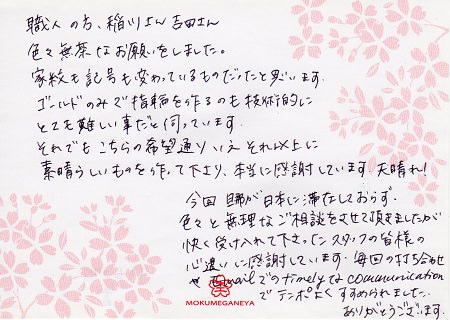 職人の方、稲川さん吉田さん
色々無茶なお願いをしました。
家紋も記号も変わっているものだったと思います。
ゴールドのみで指輪を作るのも技術的に
とても難しい事だと伺っています。
それでもこちらの希望通りいえそれ以上に
素晴らしいものを作って下さり、本当に感謝しています。天晴れ!
今回 旦那が日本に滞在しておらず、
色々と無理なご相談をさせて頂きましたが
快く受け入れて下さったスタッフの皆様の
心遣いに感謝しています。毎回の打ち合わせ
やemailでのtimelyなcommunication
でテンポよくすすめられました。
ありがとうございます。
MOKUMEGANEYA